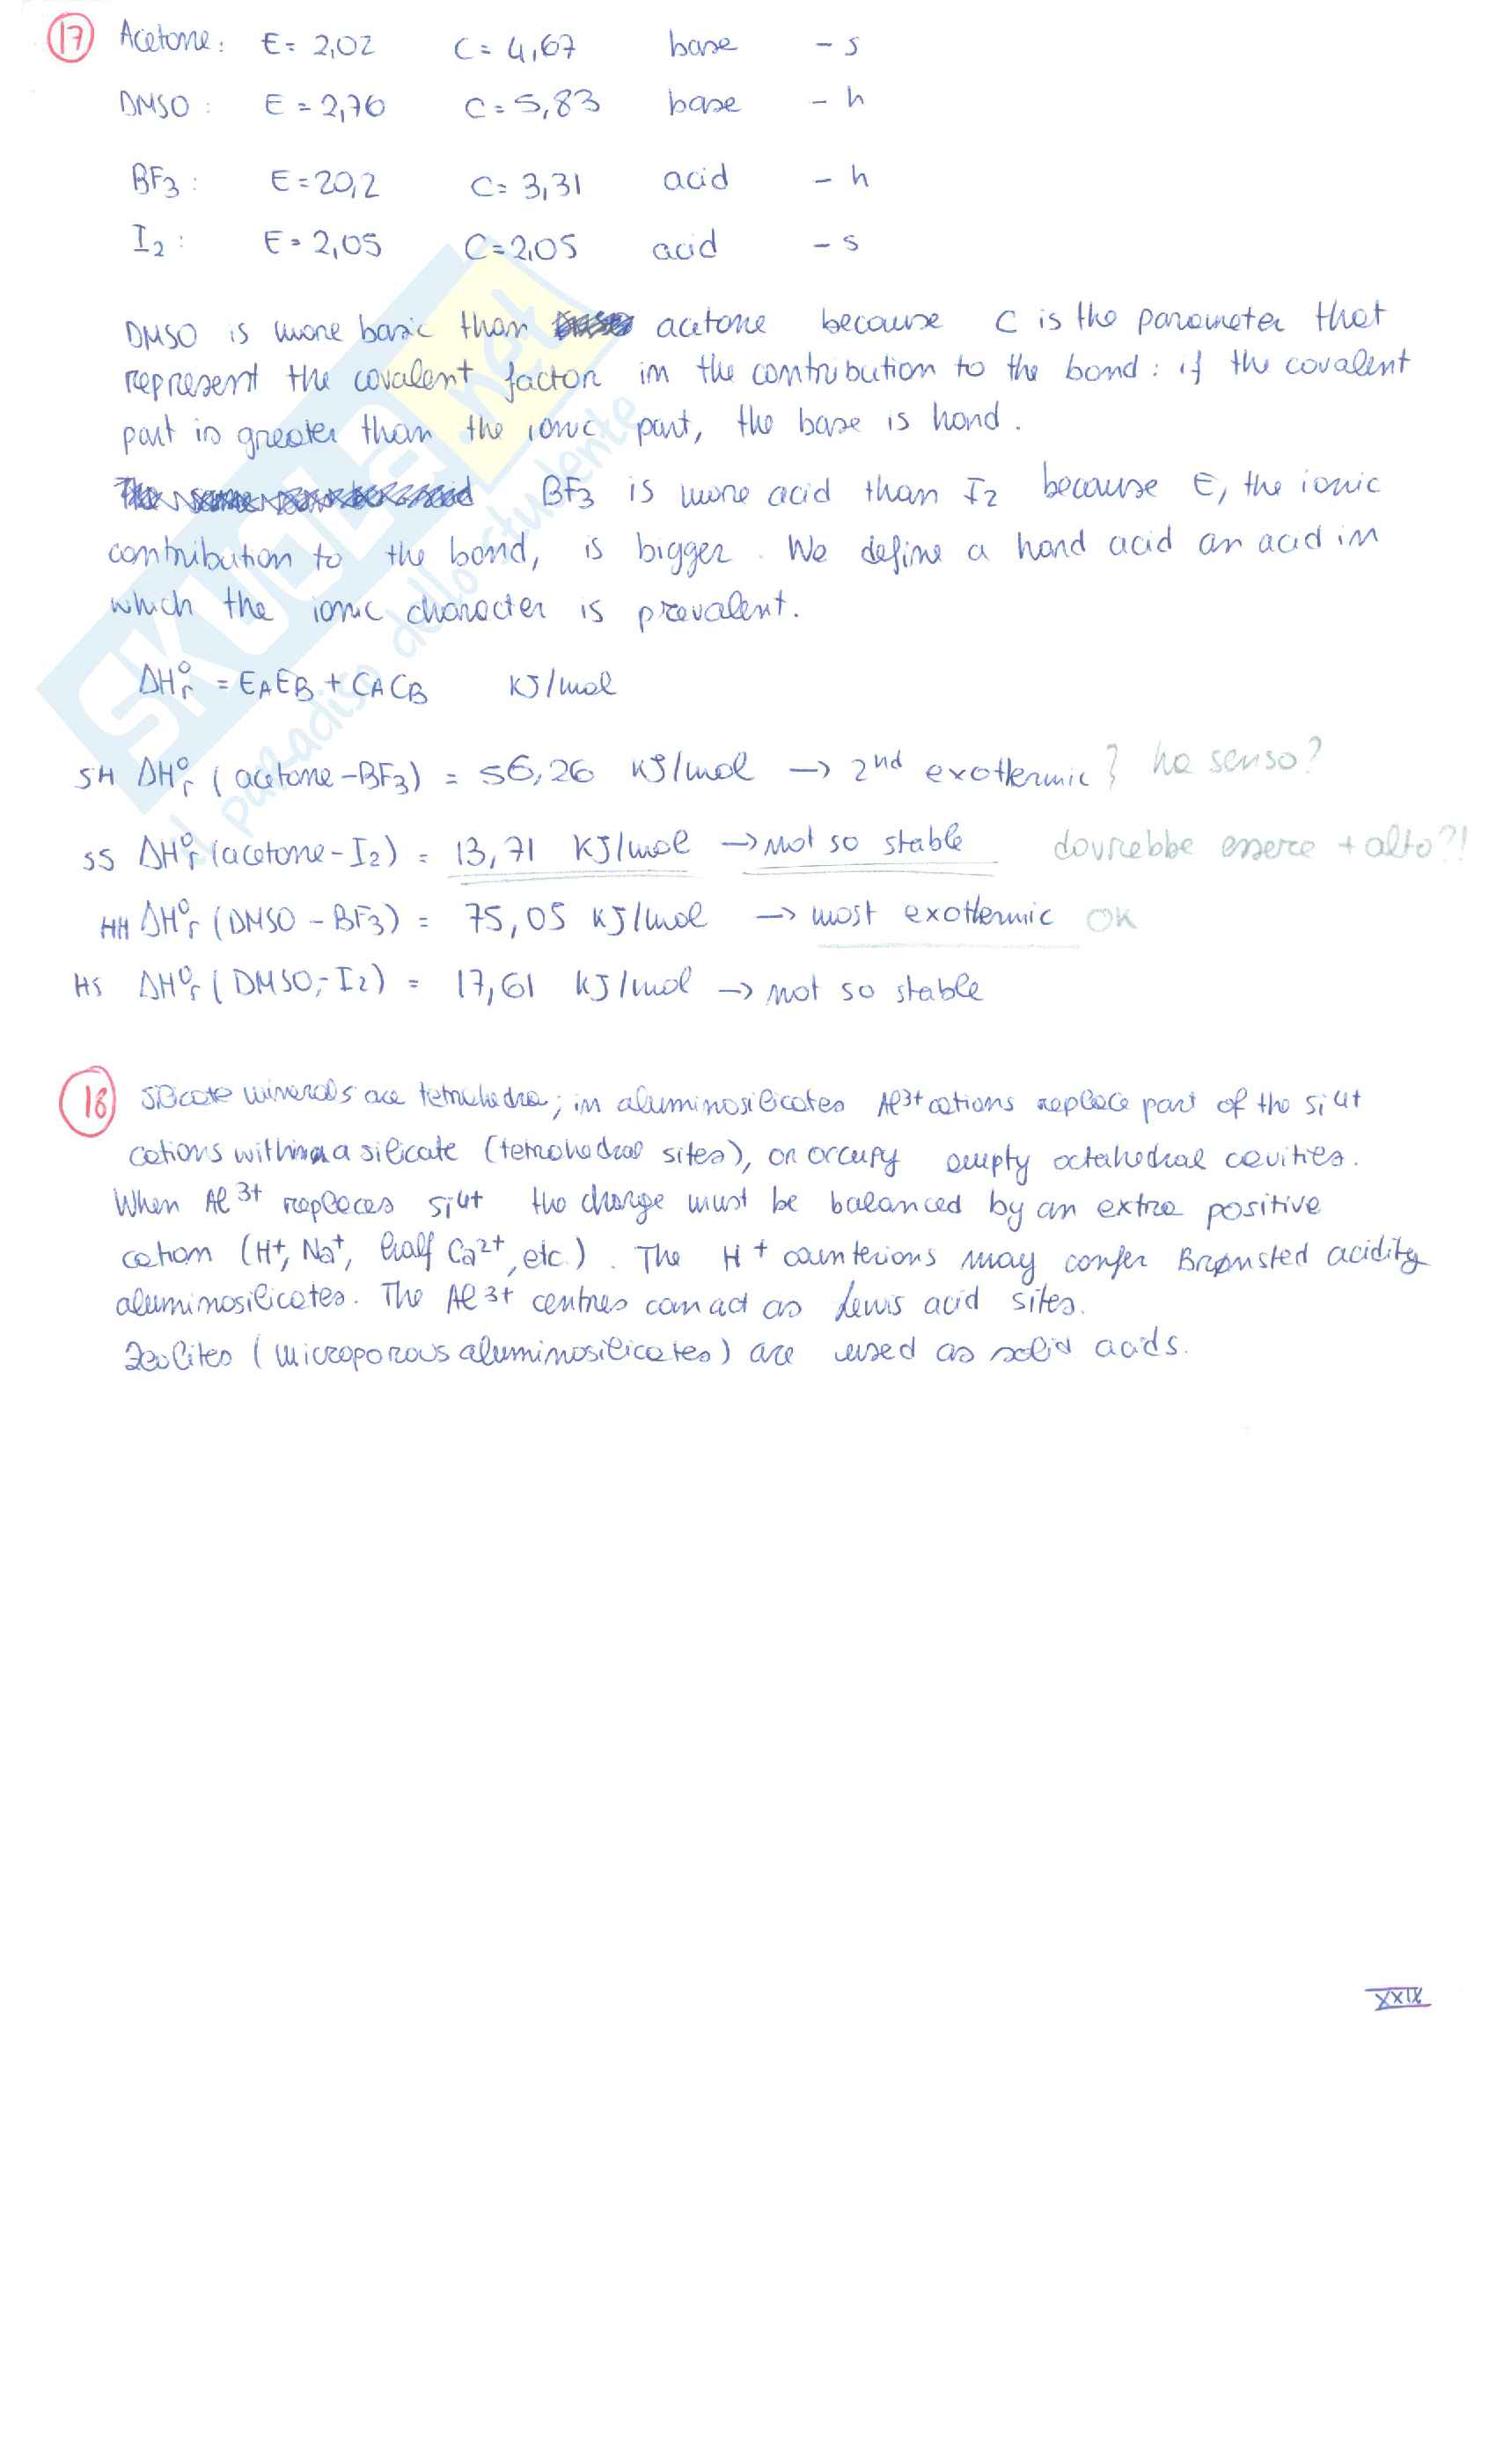 17 Acetone: E = 2,02 C = 4,67 base - s
DMSO: E = 2,76 C = 5,83 base - h
BF3: E = 20,2 C = 3,31 acid - h
I2: E = 2,05 C = 2,05 acid - s
DMSO is more basic than acetone because C is the parameter that
represent the covalent factor in the contribution to the bond: if the covalent
part is greater than the ionic part, the base is hard.
BF3 is more acid than I2 because E, the ionic
contribution to the bond, is bigger. We define a hard acid an acid in
which the ionic character is prevalent.
ΔH°r = EAEB + CACB KJ/mol
SH ΔH°r (acetone-BF3) = 56,26 KJ/mol → 2nd exothermic } ha senso?
SS ΔH°r (acetone-I2) = 13,71 KJ/mol → not so stable dovrebbe essere + alto?!
HH ΔH°r (DMSO - BF3) = 75,05 KJ/mol → most exothermic OK
HS ΔH°r (DMSO,-I2) = 17,61 KJ/mol → not so stable
18 Silicate minerals are tetrahedra; in aluminosilicates Al3+ cations replace part of the Si4+
cations within a silicate (tetrahedral sites), or occupy empty octahedral cavities.
When Al3+ replaces Si4+ the charge must be balanced by an extra positive
cation (H+, Na+, half Ca2+, etc.). The H+ counterions may confer Brønsted acidity
aluminosilicates. The Al3+ centres can act as Lewis acid sites.
Zeolites (microporous aluminosilicates) are used as solid acids.
XXIX
SKUOLA.net
il paradiso dello studente